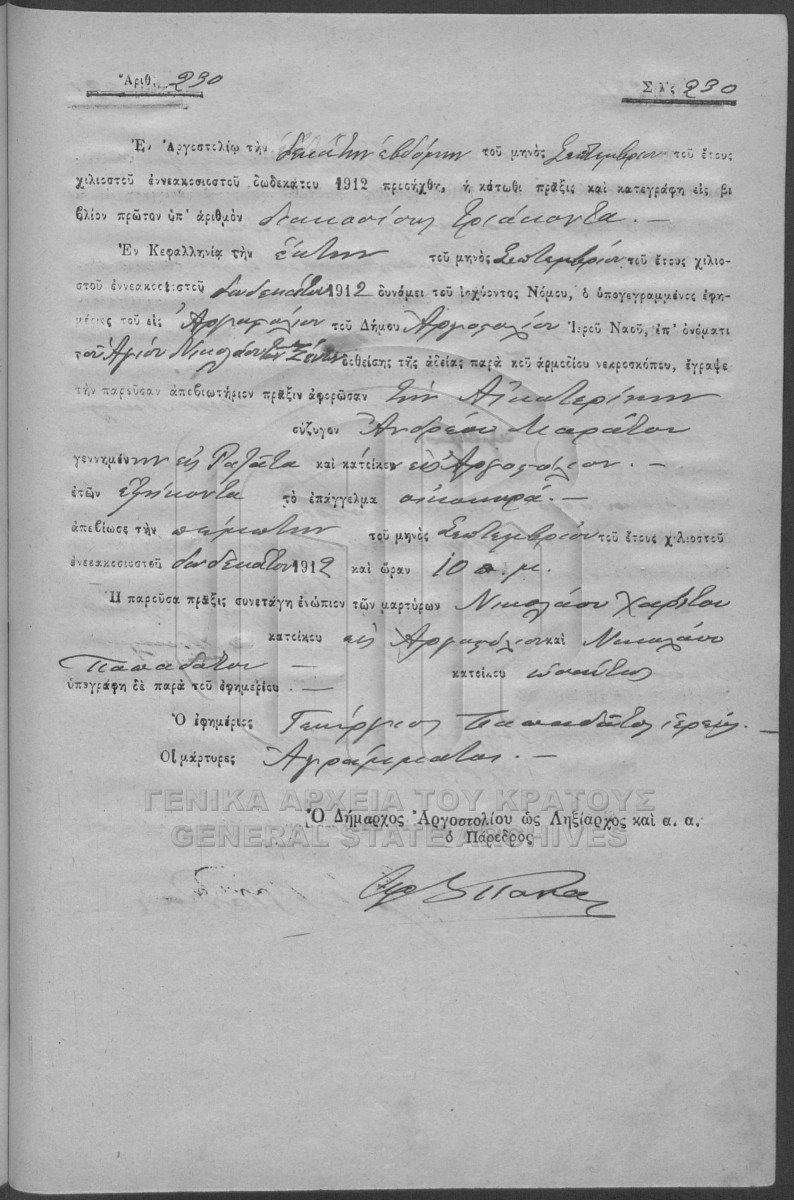 Ἀριθ. 230 Σελὶς 230
Ἐν Ἀργοστολίῳ τὴν δεκάτην ἑβδόμην τοῦ μηνὸς Σεπτεμβρίου τοῦ ἔτους
χιλιοστοῦ ἐννεακοσιοστοῦ δωδεκάτου 1912 προσήχθη, ἡ κάτωθι πρᾶξις καὶ κατεγράφη εἰς βι
βλίον πρῶτον ὑπ' ἀριθμὸν διακοσίους τριάκοντα. —
Ἐν Κεφαλληνίᾳ τὴν ἕκτην τοῦ μηνὸς Σεπτεμβρίου τοῦ ἔτους χιλιο-
στοῦ ἐννεακοσιοστοῦ δωδεκάτου 1912 δυνάμει τοῦ ἰσχύοντος Νόμου, ὁ ὑπογεγραμμένος ἐφη-
μέριος τοῦ εἰς Ἀργοστόλιον τοῦ Δήμου Ἀργοστολίου Ἱεροῦ Ναοῦ, ἐπ' ὀνόματι
τοῦ Ἁγίου Νικολάου τῶν Ξένων δοθείσης τῆς ἀδείας παρὰ τοῦ ἁρμοδίου νεκροσκόπου, ἔγραψε
τὴν παροῦσαν ἀπεβιωτήριον πρᾶξιν ἀφορῶσαν τὴν Αἰκατερίνην
σύζυγον Ἀνδρέου Μαράτου
γεννημένην εἰς Ραζάτα καὶ κάτοικον εἰς Ἀργοστόλιον. —
ἐτῶν ἑξήκοντα τὸ ἐπάγγελμα οἰκοκυρά. —
ἀπεβίωσε τὴν πέμπτην τοῦ μηνὸς Σεπτεμβρίου τοῦ ἔτους χιλιοστοῦ
ἐννεακοσιοστοῦ δωδεκάτου 1912 καὶ ὥραν 10 π. μ.
Ἡ παροῦσα πρᾶξις συνετάγη ἐνώπιον τῶν μαρτύρων Νικολάου
κατοίκου εἰς Ἀργοστόλιον καὶ Νικολάου
Παπαδάτου — κατοίκου ὡσαύτως
ὑπεγράφη δὲ παρὰ τοῦ ἐφημερίου. —
Ὁ ἐφημέριος Γεώργιος Παπαδάτος ἱερεύς. —
Οἱ μάρτυρες Ἀγράμματοι. —
ΓΕΝΙΚΑ ΑΡΧΕΙΑ ΤΟΥ ΚΡΑΤΟΥΣ
GENERAL STATE ARCHIVES
Ὁ Δήμαρχος Ἀργοστολίου ὡς Ληξίαρχος καὶ α. α.
ὁ Πάρεδρος